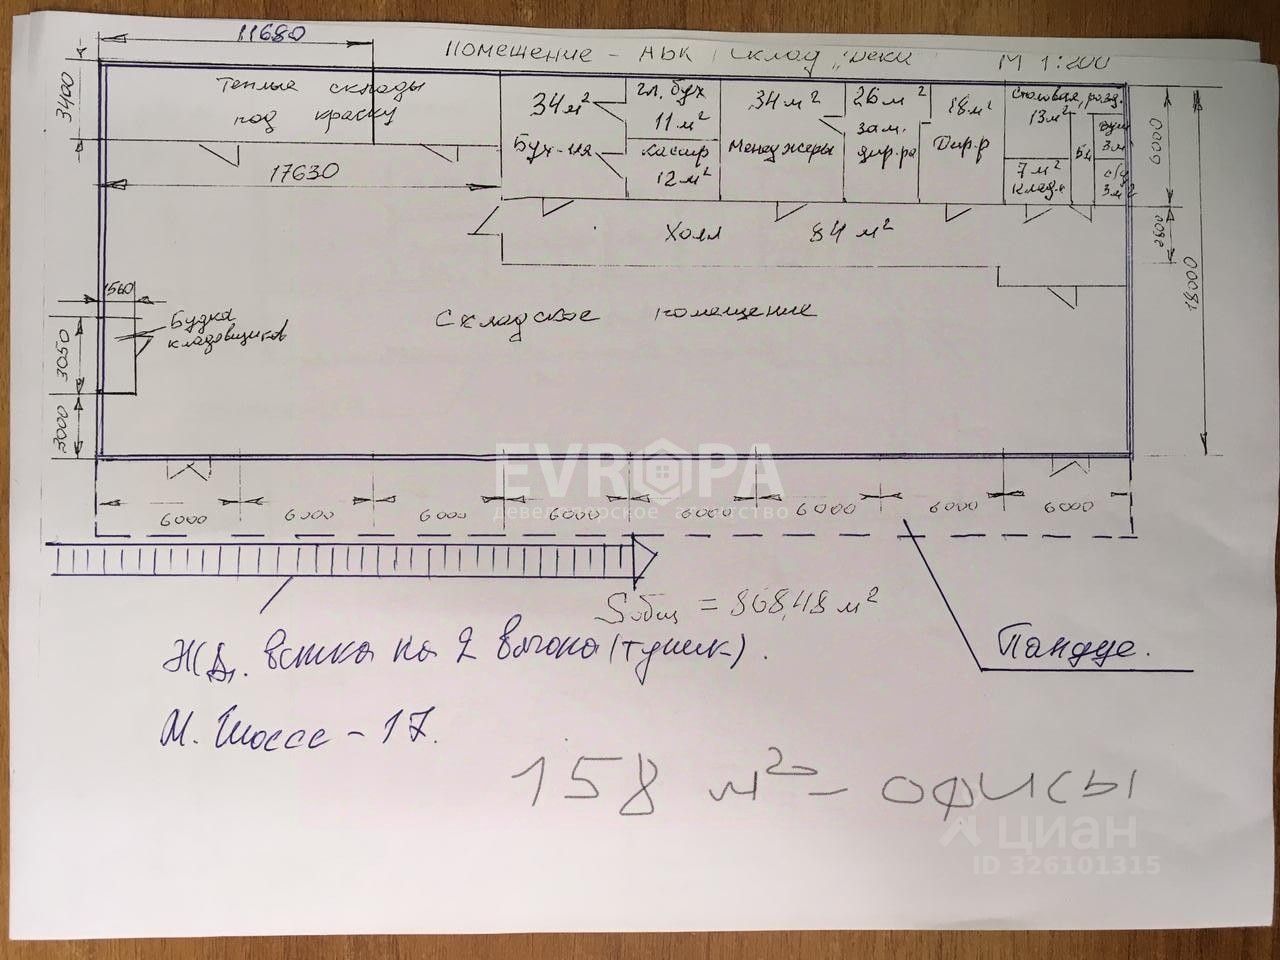 11680
Помещение - НБК
склад
М 1:200
3400
Теплые склады
под краску
17630
34 м²
Бух-ия
гл. бух
11 м²
кассир
12 м²
34 м²
Менеджеры
26 м²
зам.
дир.ра
18 м²
Дир.р
Столовая, разд.
13 м²
7 м²
клад.
3 м²
с/у
3 м²
6000
2600
18000
Холл 84 м²
1560
Будка
кладовщиков
3050
3000
Складское помещение
EVROPA
девелоперское агентство
6000 6000 6000 6000 6000 6000 6000 6000
Sобщ = 868,48 м²
ЖД. ветка на 2 вагона (тупик).
Пандус.
М. Шоссе - 17.
158 м² - офисы
циан
ID 326101315